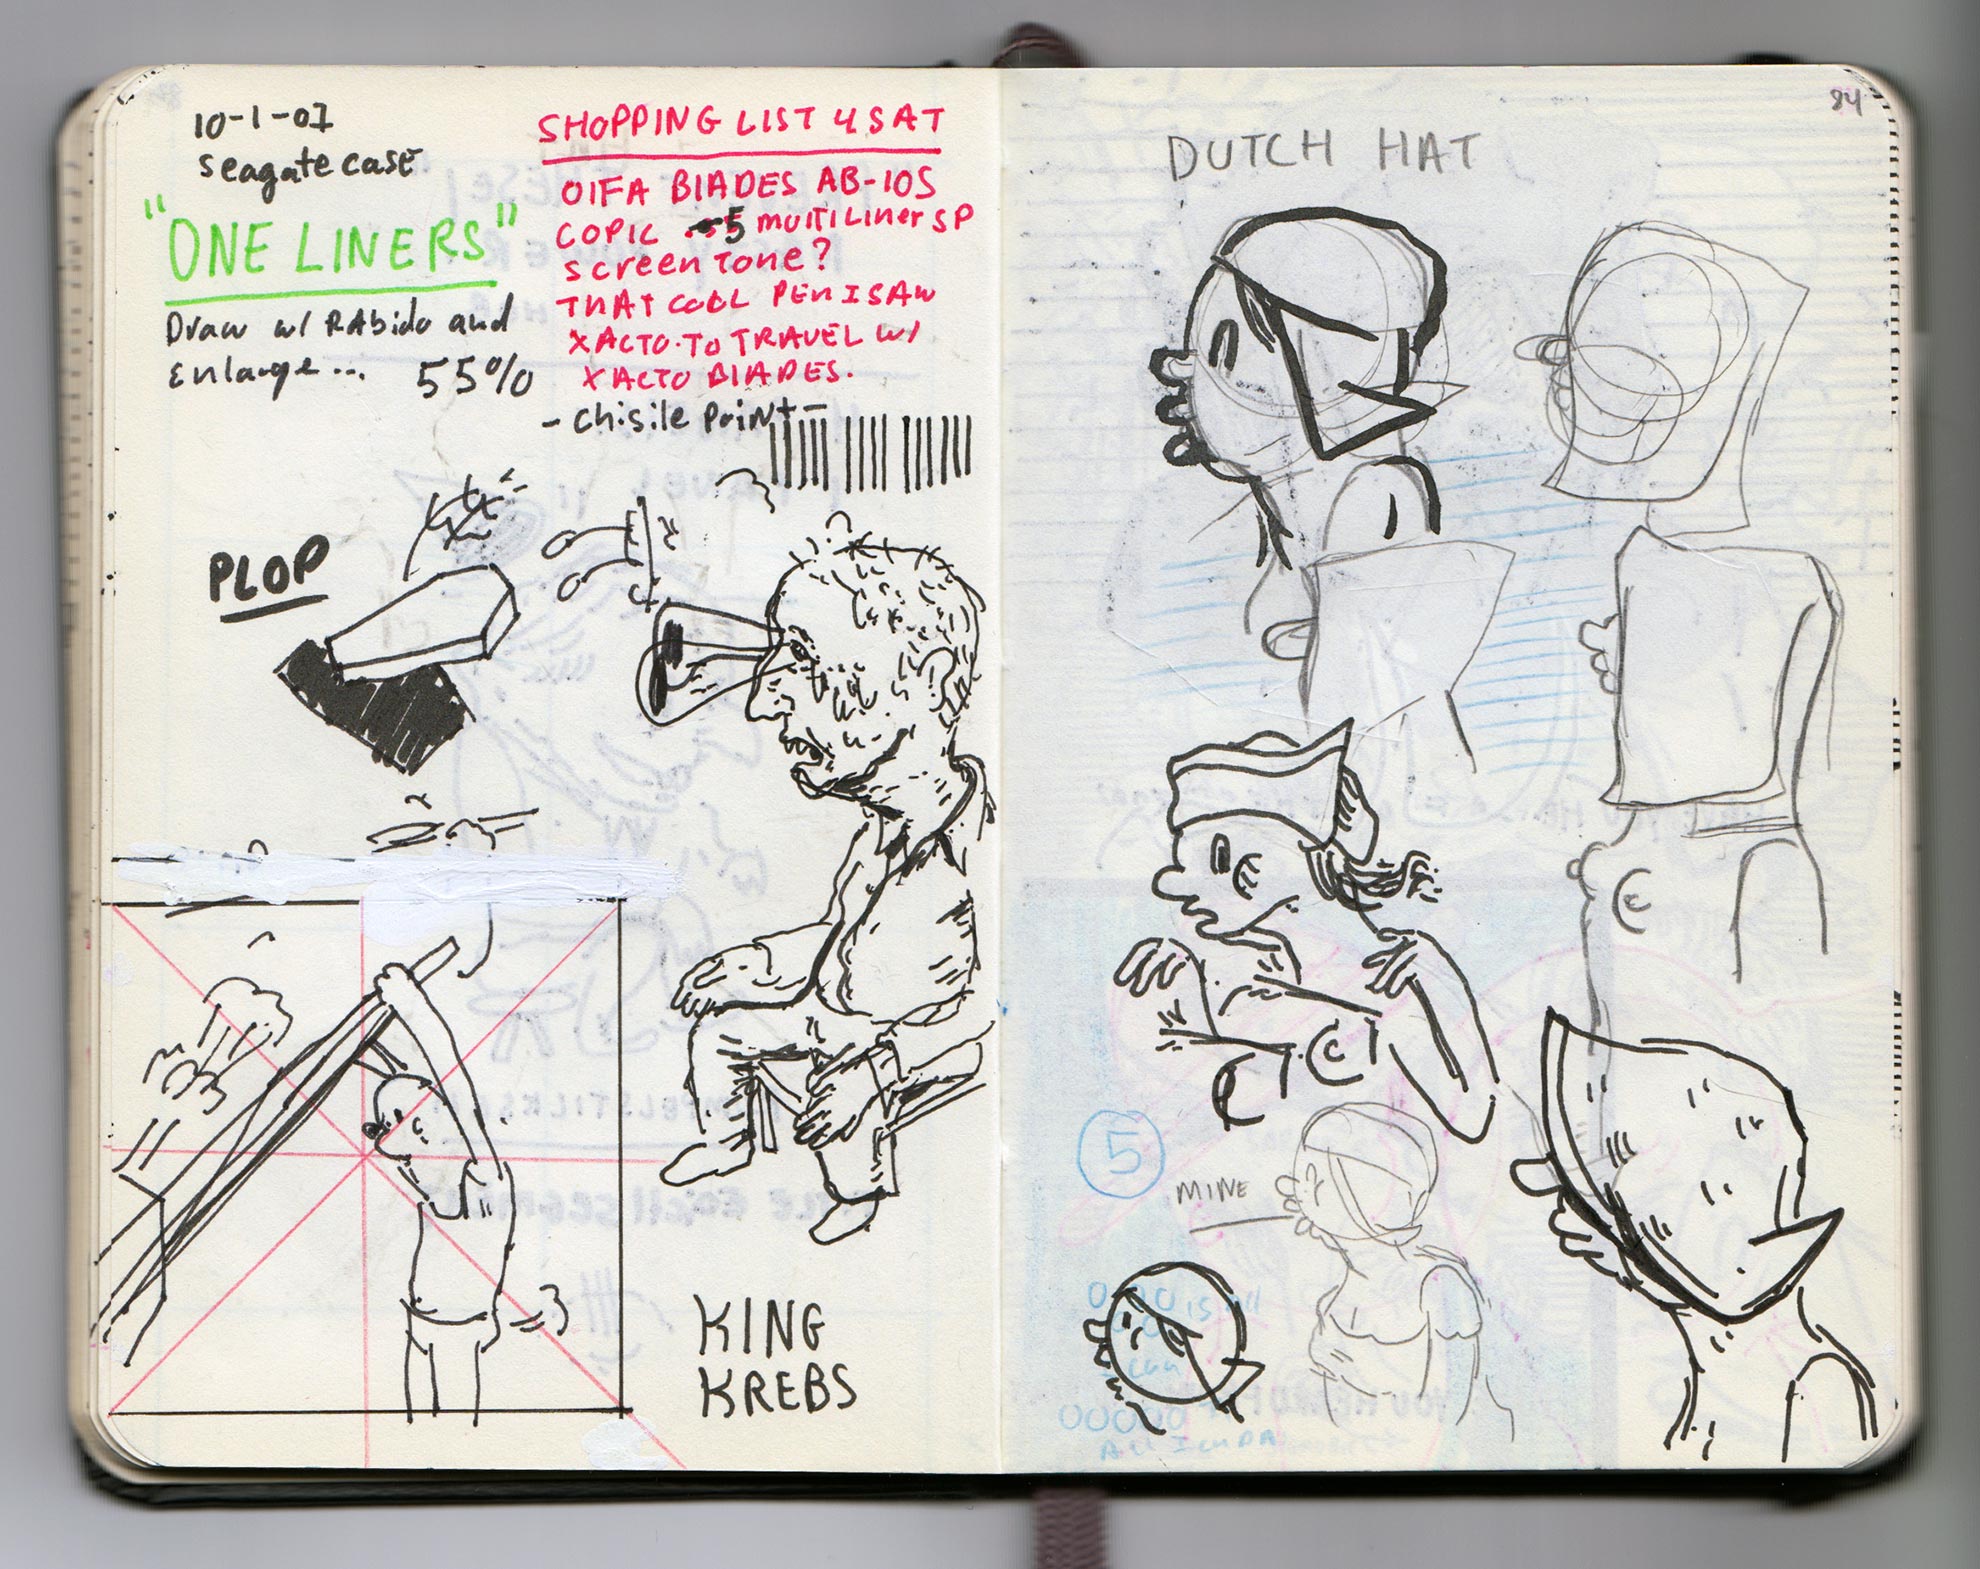 10-1-07
seagate case
"ONE LINERS"
Draw w/ RAbido and
Enlarge... 55%
SHOPPING LIST 4 SAT
OlFA BlADES AB-10S
COPIC 5 multiliner SP
screen Tone?
THAT COOL PEN I SAW
XACTO. TO TRAVEL W/
XACTO BlADES.
- chisile Point -
PLOP
KING
KREBS
84
DUTCH HAT
5
MINE
is all